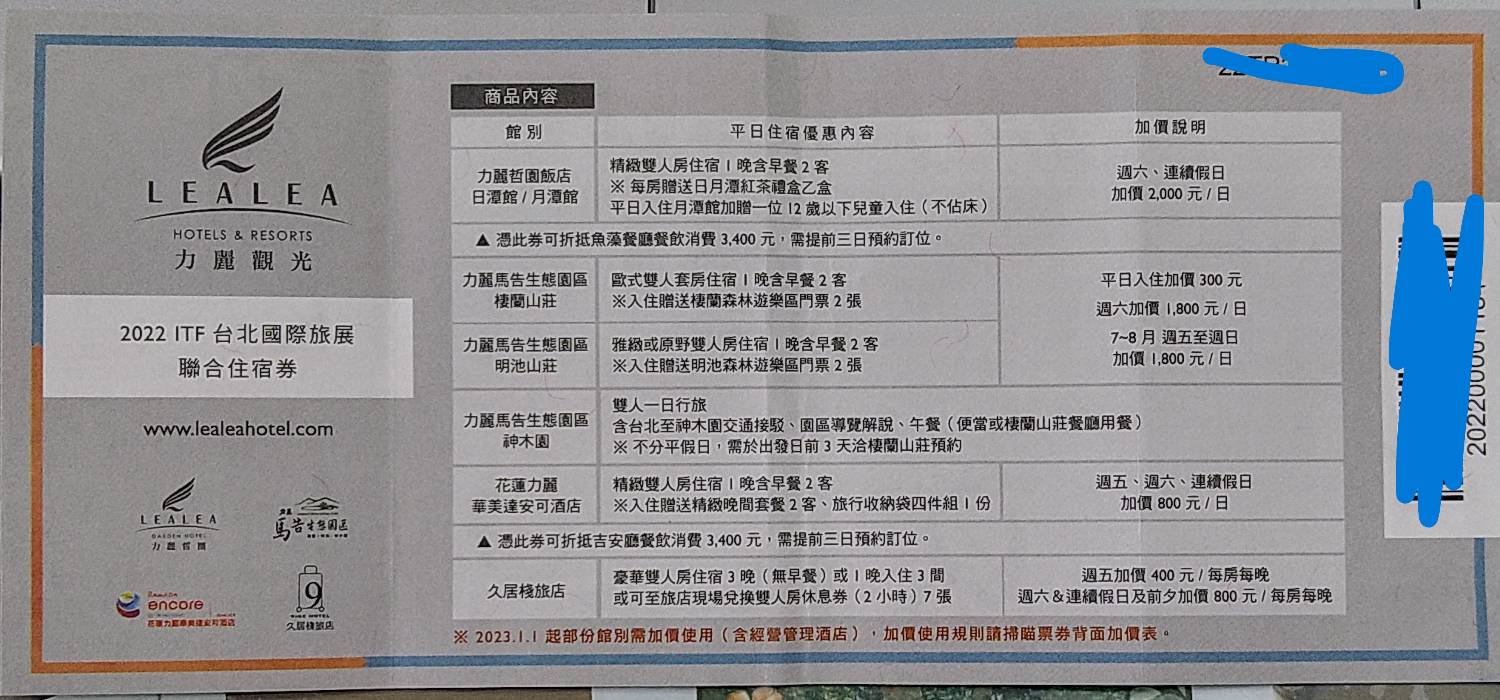 LEALEA
HOTELS & RESORTS
力麗觀光
2022 ITF 台北國際旅展
聯合住宿券
www.lealeahotel.com
LEALEA
GARDEN HOTEL
力麗哲園
力麗
馬告生態園區
encore
花蓮力麗華美達安可酒店
9
久居棧旅店
商品內容
館別
平日住宿優惠內容
加價說明
力麗哲園飯店
日潭館 / 月潭館
精緻雙人房住宿 1 晚含早餐 2 客
※ 每房贈送日月潭紅茶禮盒乙盒
平日入住月潭館加贈一位 12 歲以下兒童入住（不佔床）
週六、連續假日
加價 2,000 元 / 日
▲ 憑此券可折抵魚藻餐廳餐飲消費 3,400 元，需提前三日預約訂位。
力麗馬告生態園區
棲蘭山莊
歐式雙人套房住宿 1 晚含早餐 2 客
※入住贈送棲蘭森林遊樂區門票 2 張
力麗馬告生態園區
明池山莊
雅緻或原野雙人房住宿 1 晚含早餐 2 客
※入住贈送明池森林遊樂區門票 2 張
平日入住加價 300 元
週六加價 1,800 元 / 日
7~8 月 週五至週日
加價 1,800 元 / 日
力麗馬告生態園區
神木園
雙人一日行旅
含台北至神木園交通接駁、園區導覽解說、午餐（便當或棲蘭山莊餐廳用餐）
※ 不分平假日，需於出發日前 3 天洽棲蘭山莊預約
花蓮力麗
華美達安可酒店
精緻雙人房住宿 1 晚含早餐 2 客
※入住贈送精緻晚間套餐 2 客、旅行收納袋四件組 1 份
週五、週六、連續假日
加價 800 元 / 日
▲ 憑此券可折抵吉安廳餐飲消費 3,400 元，需提前三日預約訂位。
久居棧旅店
豪華雙人房住宿 3 晚（無早餐）或 1 晚入住 3 間
或可至旅店現場兌換雙人房休息券（2 小時）7 張
週五加價 400 元 / 每房每晚
週六＆連續假日及前夕加價 800 元 / 每房每晚
※ 2023.1.1 起部份館別需加價使用（含經營管理酒店），加價使用規則請掃瞄票券背面加價表。